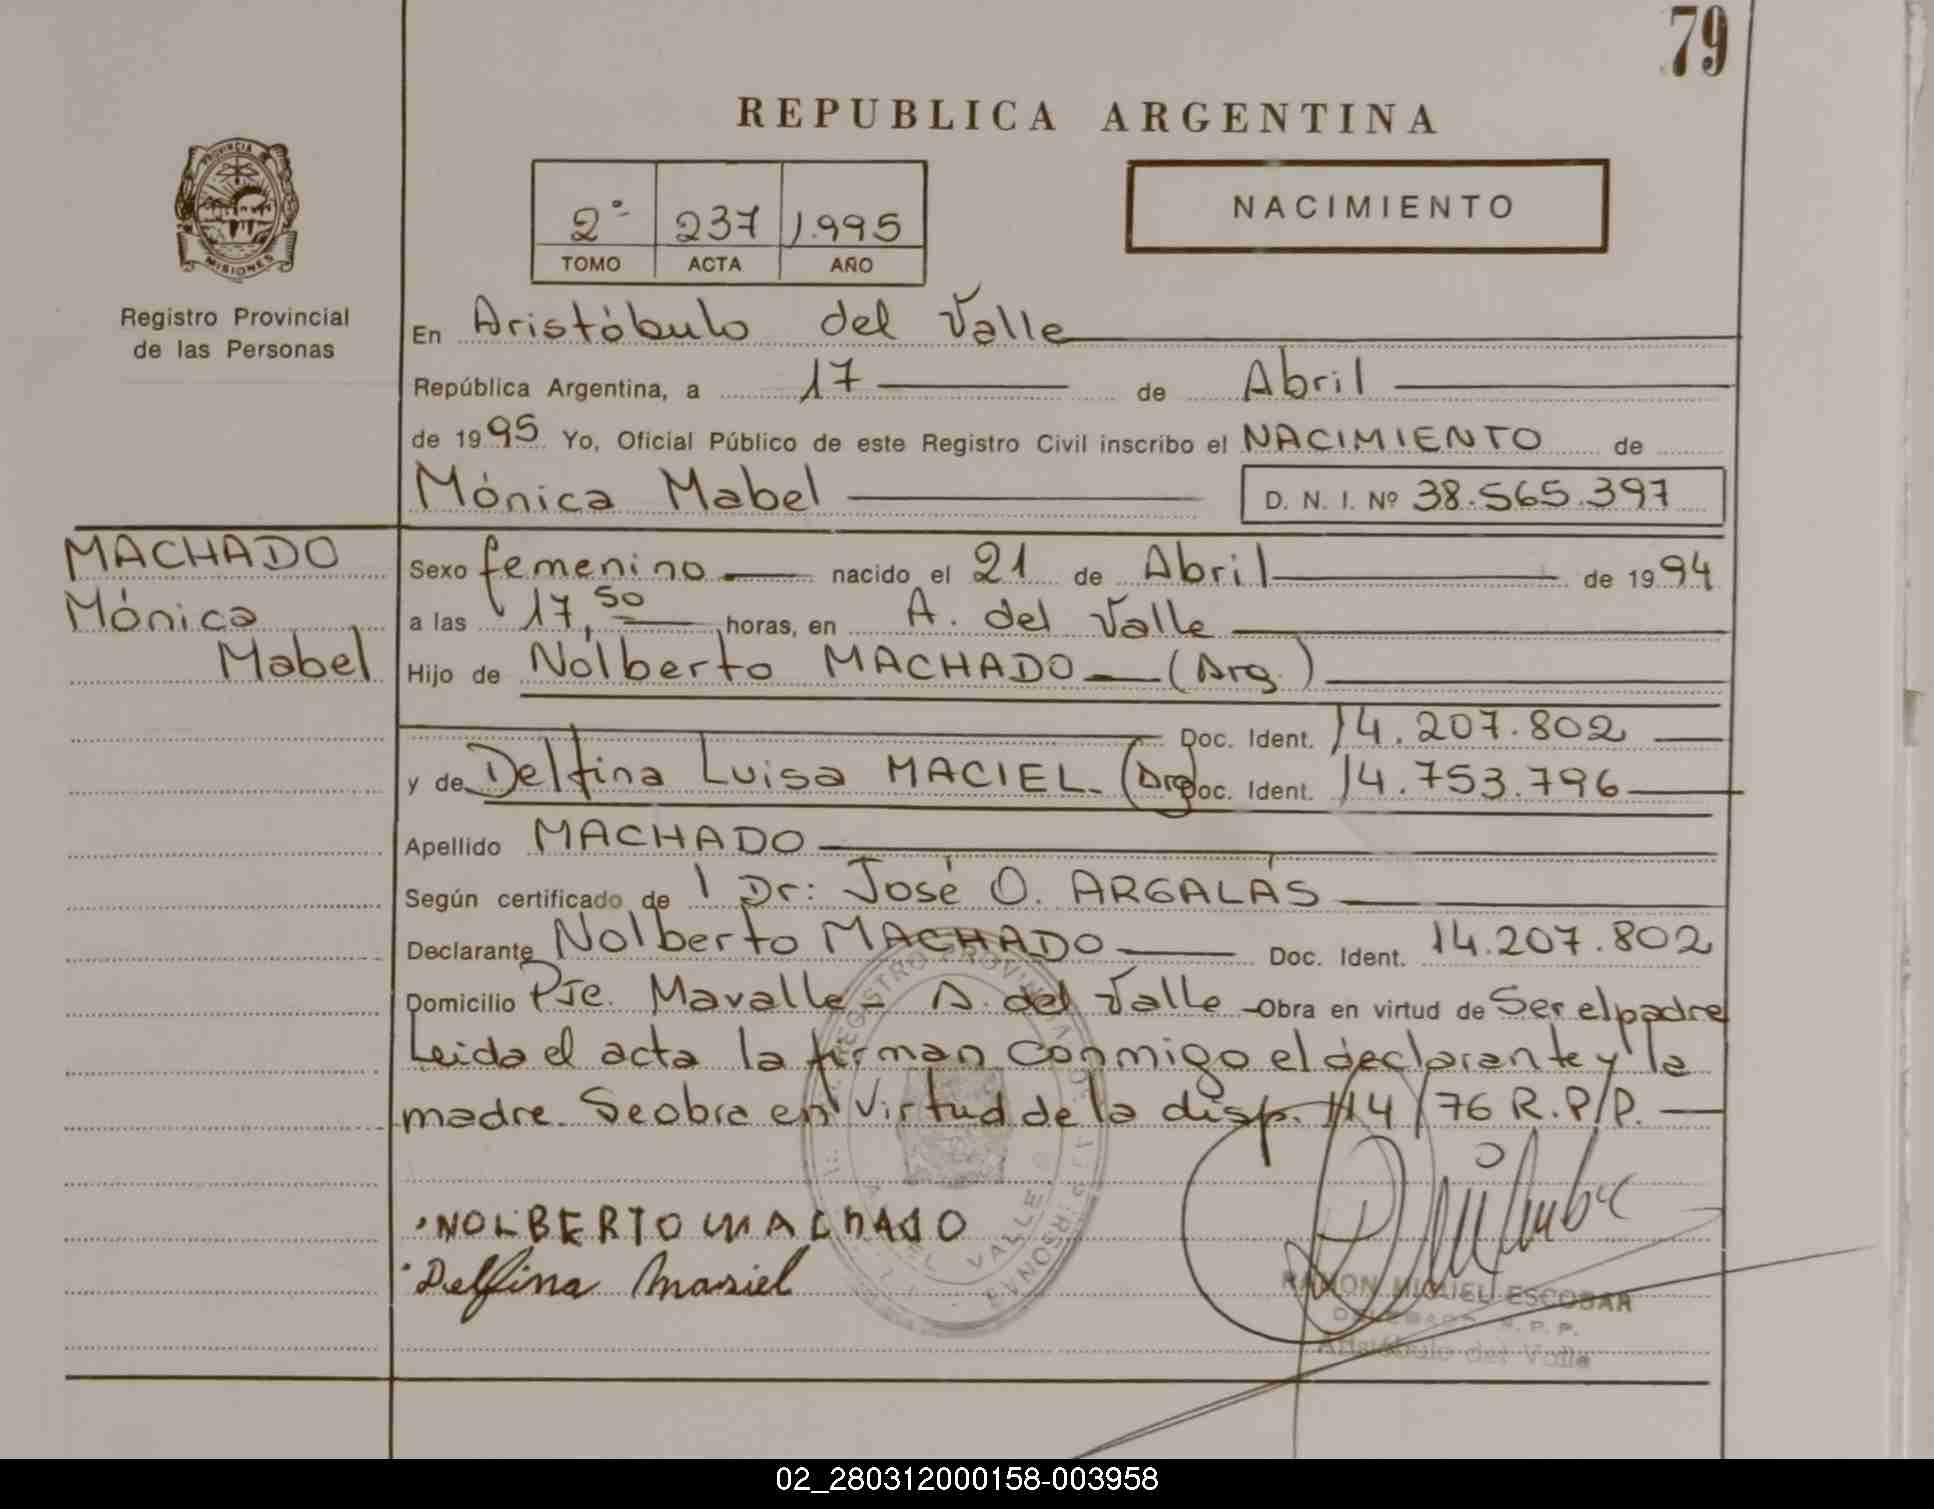 79
REPUBLICA ARGENTINA
PROVINCIA DE
MISIONES
Registro Provincial
de las Personas
2º 237 1.995
TOMO ACTA AÑO
NACIMIENTO
En Aristóbulo del Valle
República Argentina, a 17 de Abril
de 1995 Yo, Oficial Público de este Registro Civil inscribo el NACIMIENTO de
Mónica Mabel D. N. I. Nº 38.565.397
MACHADO
Mónica
Mabel
Sexo femenino nacido el 21 de Abril de 1994
a las 17,50 horas, en A. del Valle
Hijo de Nolberto MACHADO (Arg.)
Doc. Ident. 14.207.802
y de Delfina Luisa MACIEL (Arg) Doc. Ident. 14.753.796
Apellido MACHADO
Según certificado de Dr: José O. ARGALÁS
Declarante Nolberto MACHADO Doc. Ident. 14.207.802
Domicilio Pje. Mavalle - A. del Valle Obra en virtud de Ser el padre
Leida el acta la firman conmigo el declarante y la
madre. Se obra en virtud de la disp. 114/76 R.P/P.
REGISTRO PROVINCIAL DE LAS PERSONAS
DEL VALLE
NOLBERTO MACHADO
Delfina Masiel
RAMON MIGUEL ESCOBAR
DELEGADO R. P. P.
Aristóbulo del Valle
02_280312000158-003958